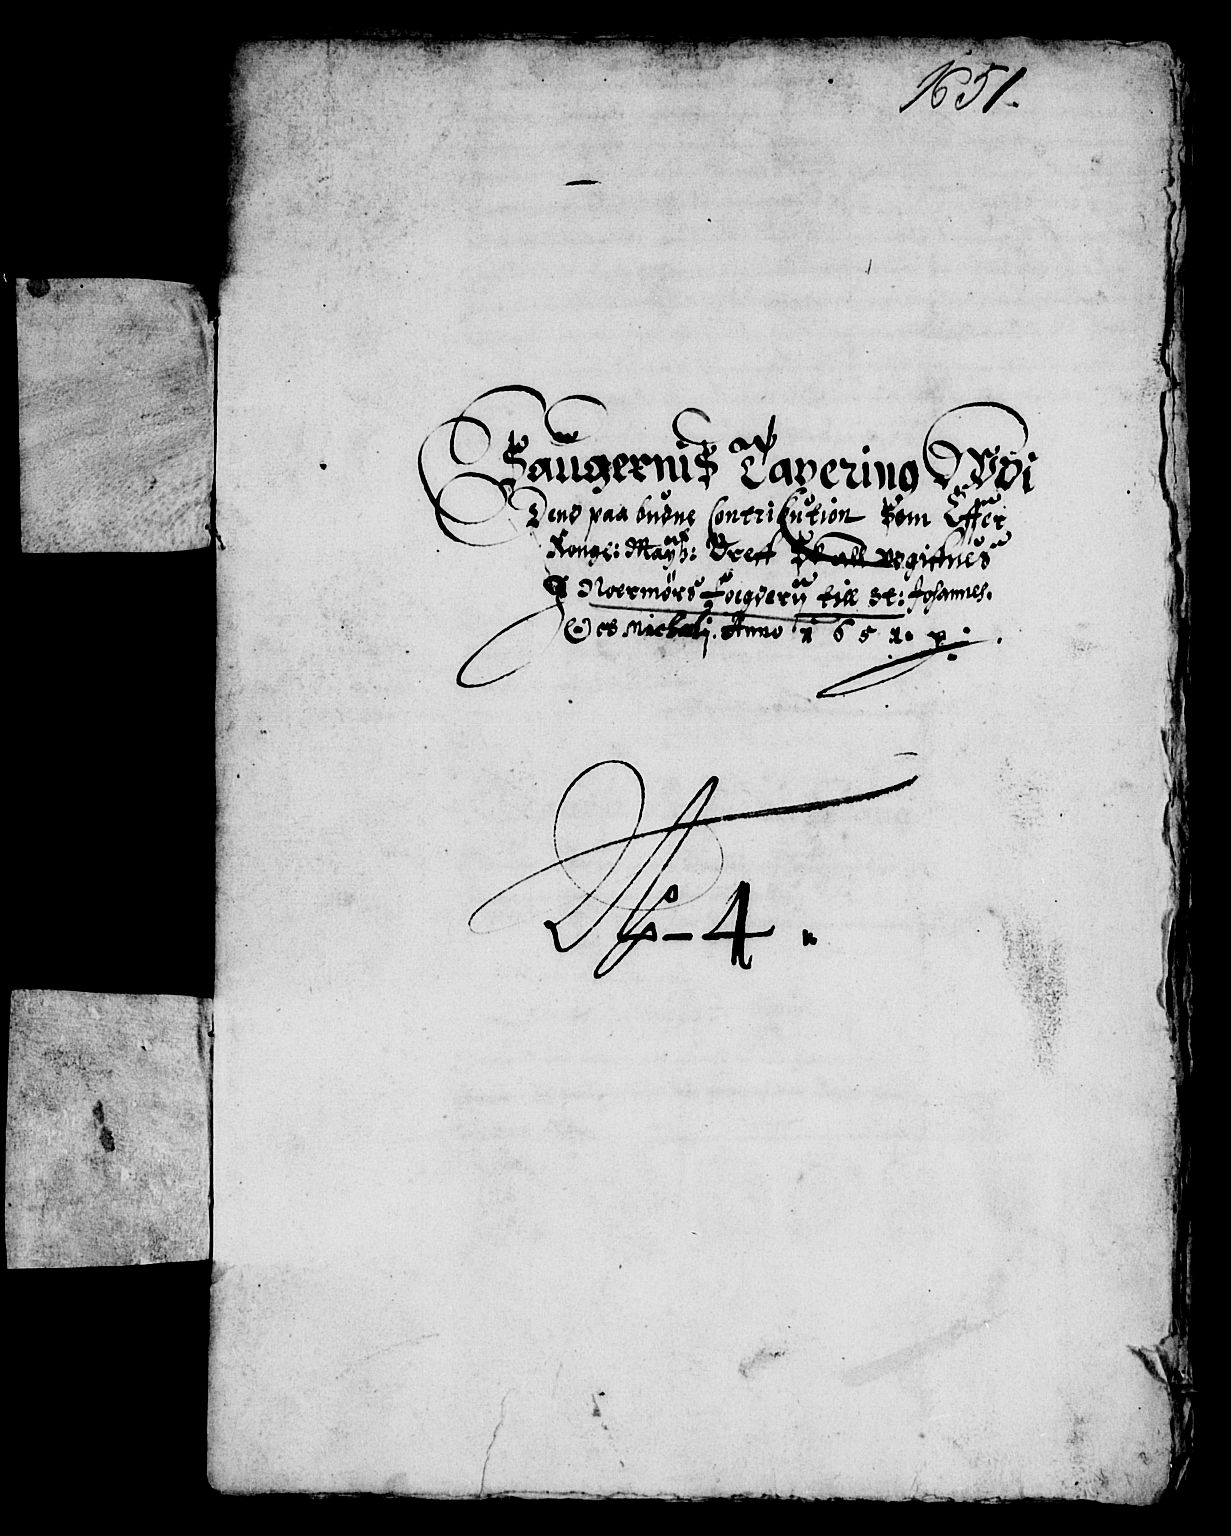 1651.
Saugernis Tapering Wdi
Dens paa budne Contribution Som Effter
Konge: Mayts: Breff Skall udgiffues
Aff Noermörs Foigdery till St: Johannes.
Oc Michaelj. Anno 1651. p:
No 4.